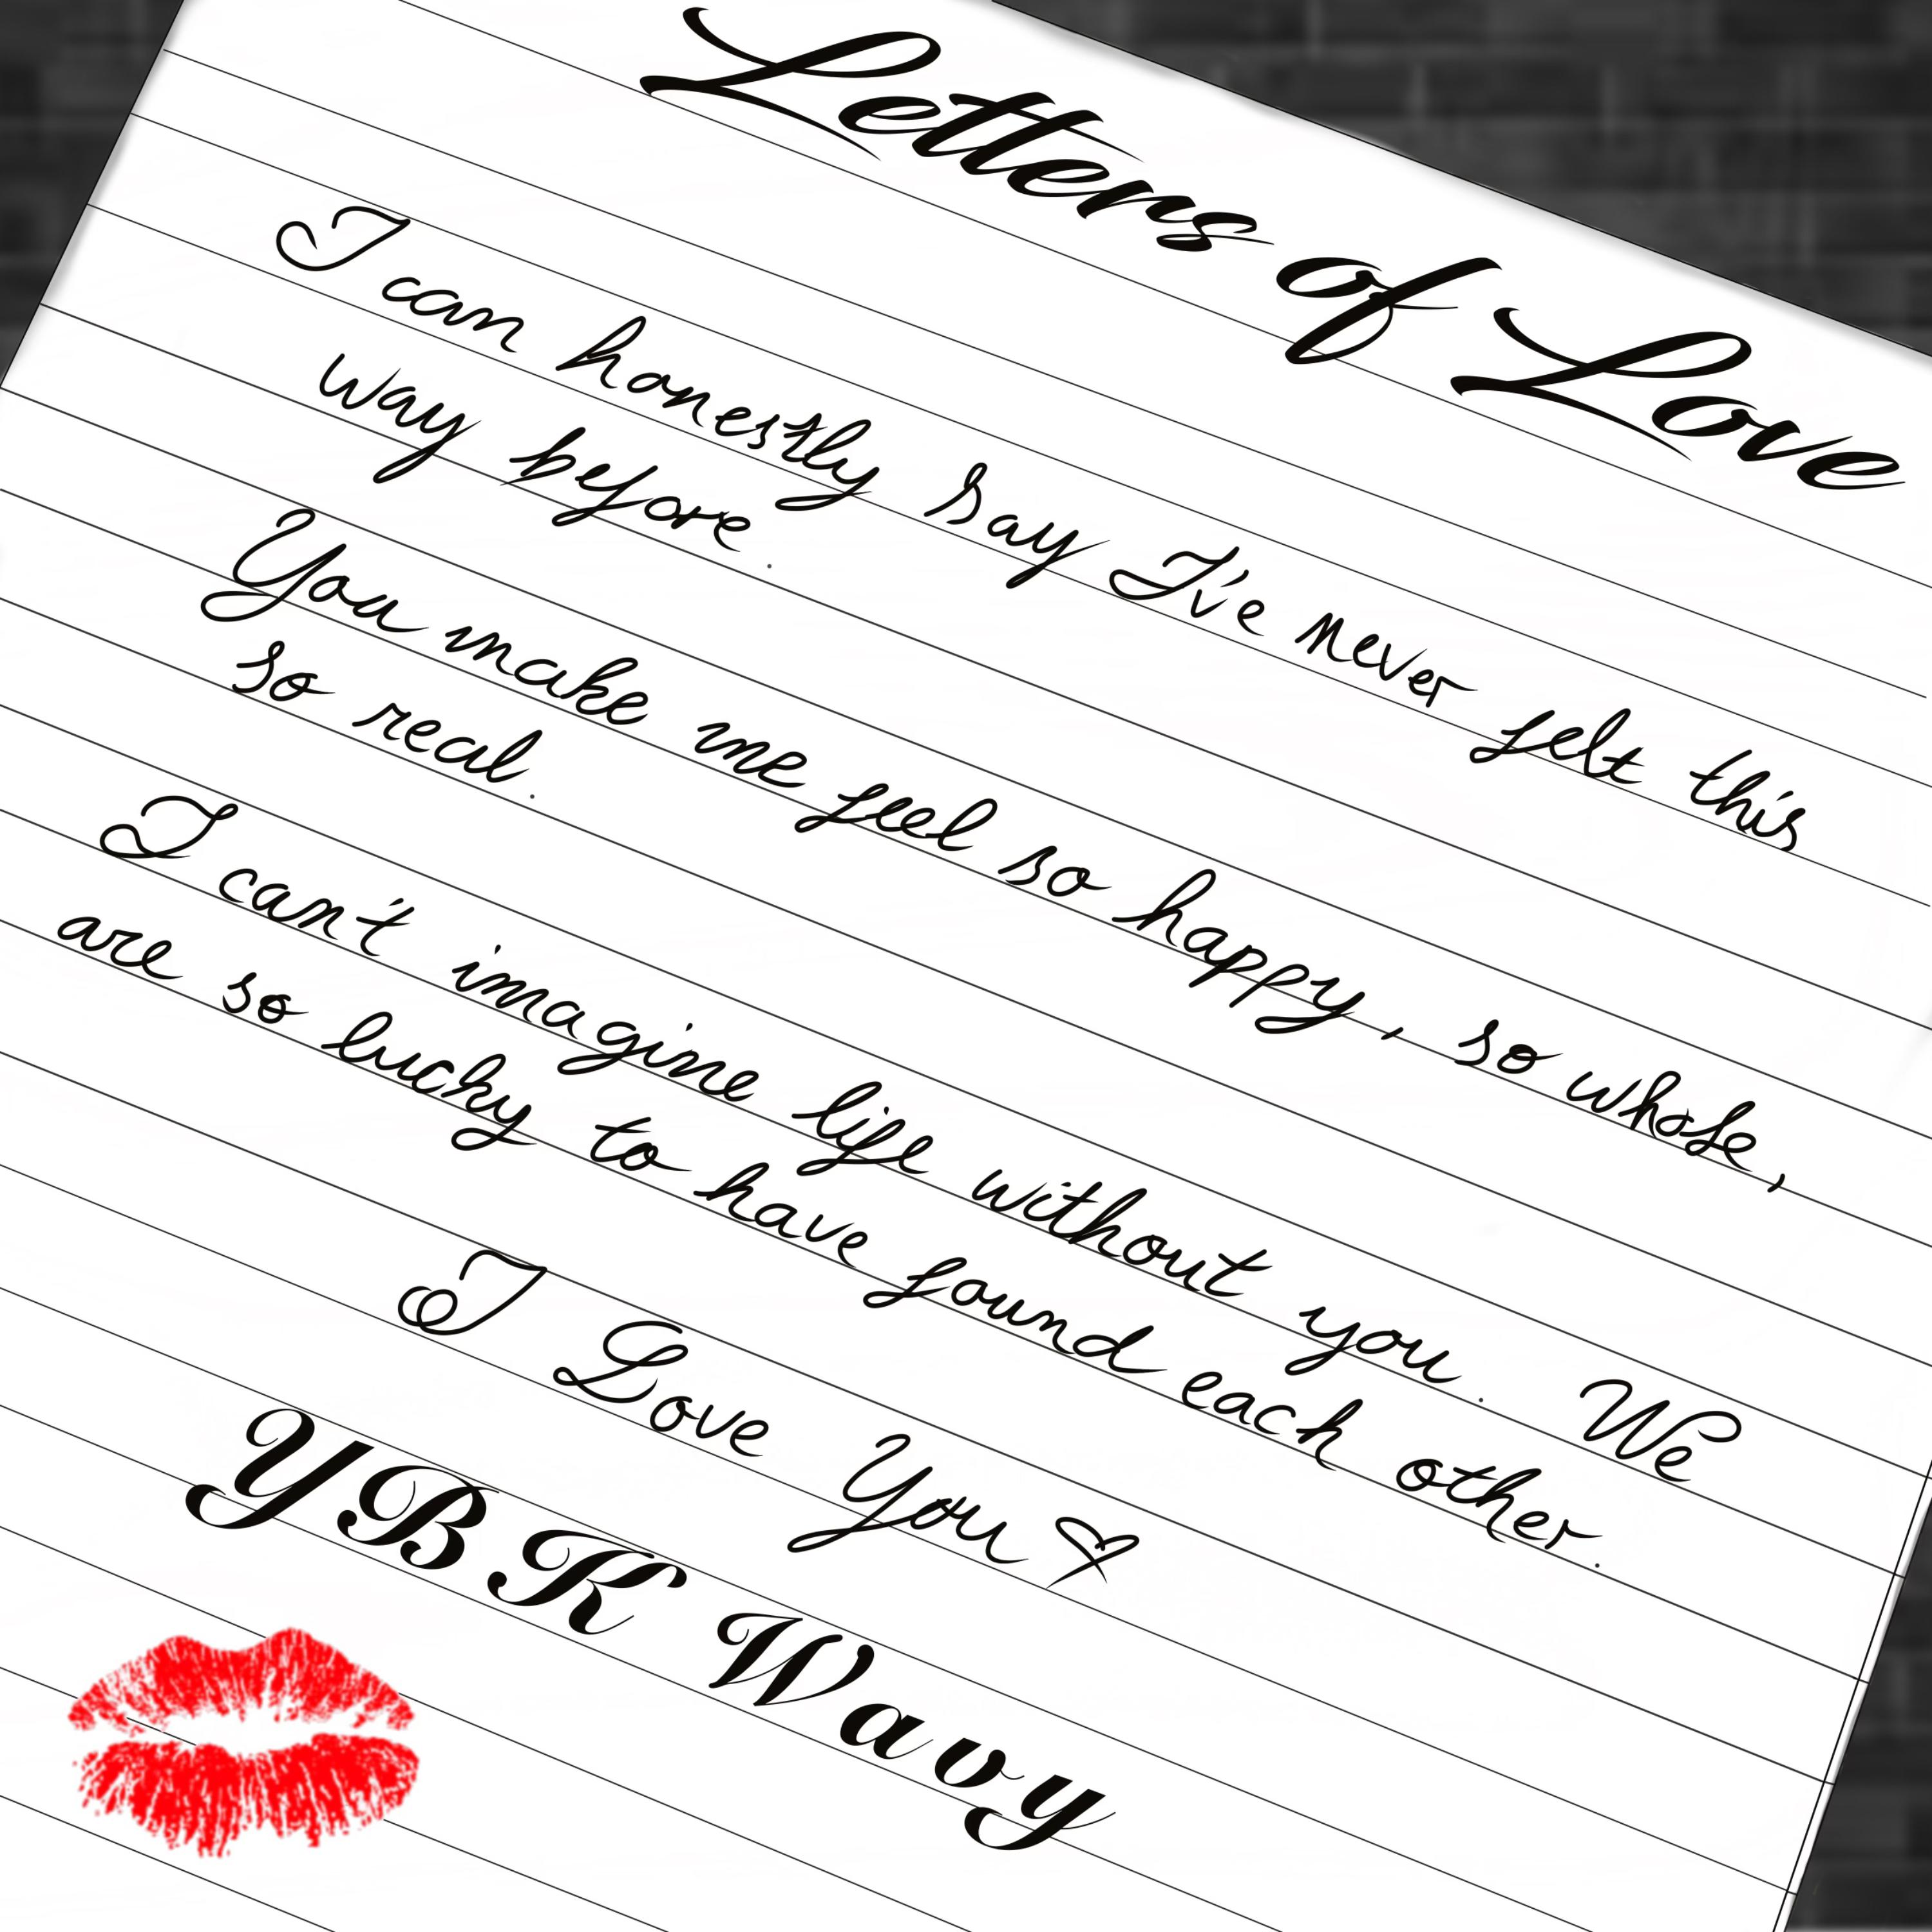 Letters of Love
I can honestly say I've never felt this
way before.
You make me feel so happy, so whole,
so real.
I can't imagine life without you. We
are so lucky to have found each other.
I Love You
YBK Wavy